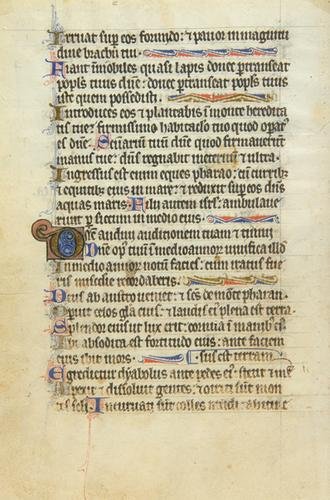 Irruat sup eos formido: ⁊ pauor in magnitu
dine brachii tui.
Fiant inmobiles quasi lapis donec ptranseat
popls tuus dne: donec ptranseat popls tuus
iste quem possedisti.
Introduces eos ⁊ plantabis i monte heredita
tis tue: firmissimo habitaclo tuo quod opat
es dne. Sctuarium tuu dne quod firmauerut
manus tue: dns regnabit in eternu ⁊ ultra.
Ingressus est enim eques pharao: cu curribz
⁊ equitibz eius in mare: ⁊ reduxit sup eos dns
aquas maris. Filii autem isrl ambulaue
runt p siccum in medio eius.
Dne audiui auditionem tuam ⁊ timui
Dne op tuu i medio annor uiuifica illd
In medio annor notu facies: cum iratus fue
ris misedie recordaberis.
Deus ab austro ueniet: ⁊ scs de monte pharan.
Opuit celos gla eius: ⁊ laudis ei plena est terra.
Splendor eius ut lux erit: cornua i manibz ei
Ibi absodita est fortitudo eius: ante faciem
eius ibit mors.
Egredietur dyabolus ante pedes ei stetit ⁊ me
Aspexit ⁊ dissoluit gentes: ⁊ ⁊triti sut mon
tes scli. Incuruati sut colles mudi: ab itine